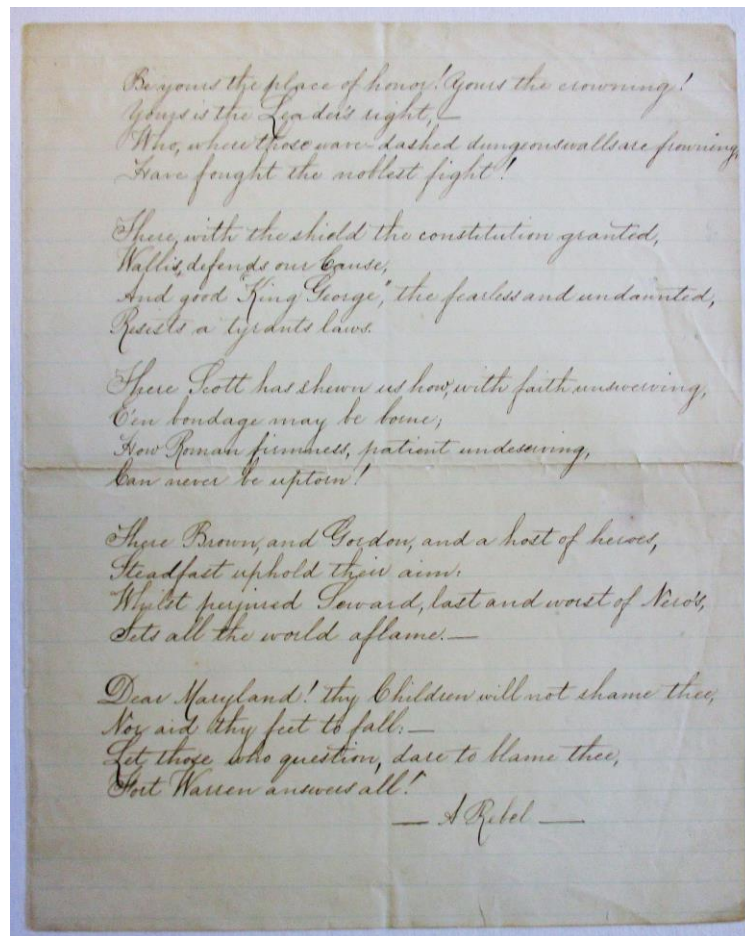 Be yours the place of honor! Yours the crowning!
Yours is the Leader's right, —
Who, where those wave-dashed dungeons walls are frowning,
Have fought the noblest fight!
There, with the shield the constitution granted,
Wallis, defends our Cause,
And good "King George", the fearless and undaunted,
Resists a tyrants laws.
There Scott has shewn us how, with faith unswerving,
E'en bondage may be borne;
How Roman firmness, patient undeserving,
Can never be uptorn!
There Brown, and Gordon, and a host of heroes,
Steadfast uphold their aim:
Whilst perjured Seward, last and worst of Nero's,
Sets all the world aflame. —
Dear Maryland! thy Children will not shame thee,
Nor aid thy feet to fall: —
Let those who question, dare to blame thee,
Fort Warren answers all!
— A Rebel —